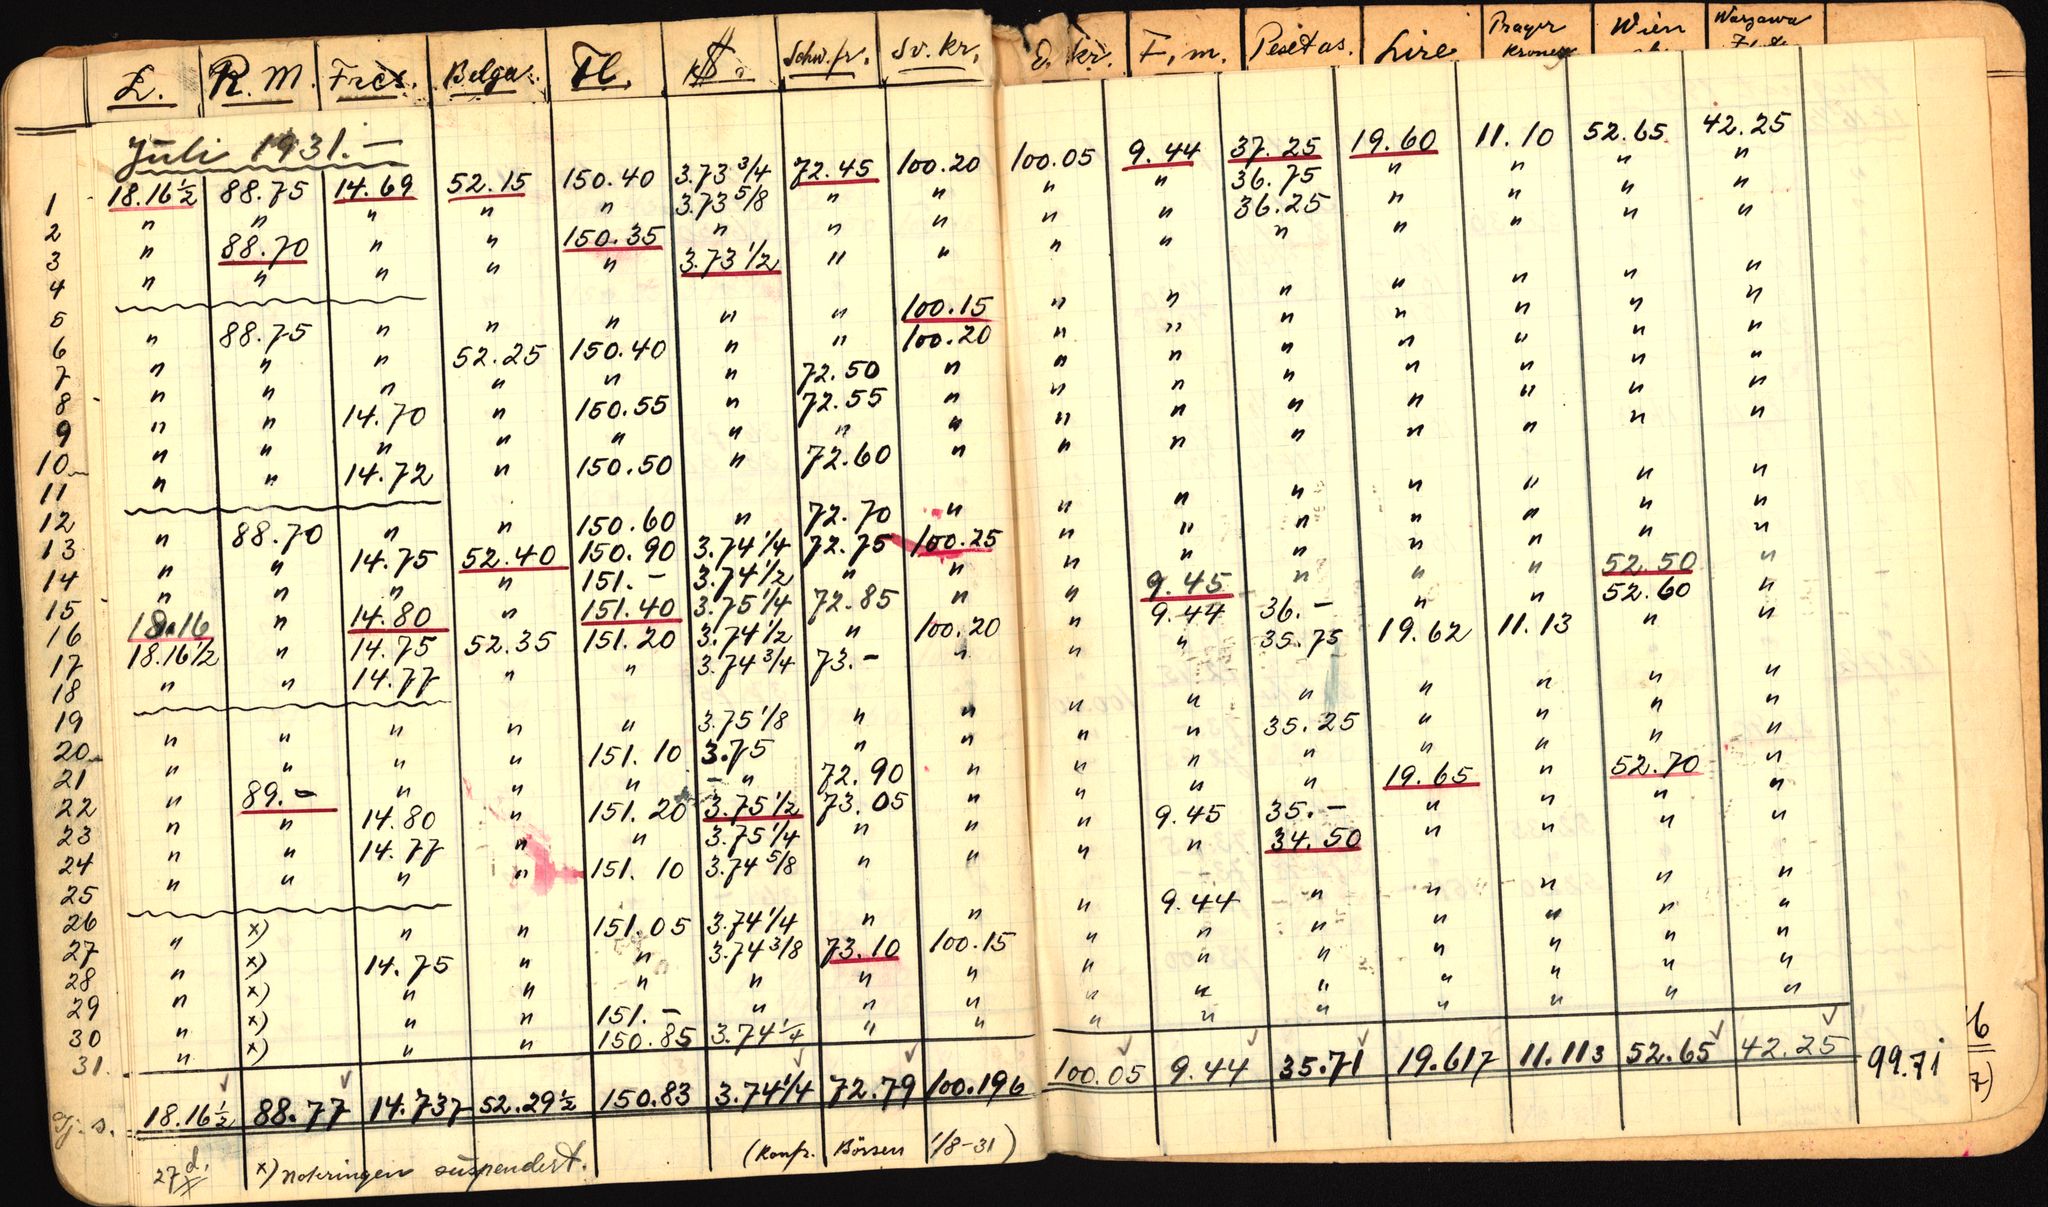 £. R.M. Frcs. Belga. Fl. $. Schw.fr. Sv. Kr. D. Kr. F.m. Pesetas. Lire Prager Kroner Wien Warzawa
Juli 1931.—
1 18.16½ 88.75 14.69 52.15 150.40 3.73 3/4 72.45 100.20 100.05 9.44 37.25 19.60 11.10 52.65 42.25
2 " " " " " 3.73 5/8 " " " " 36.75 " " " "
3 " 88.70 " " 150.35 " " " " " 36.25 " " " "
4 " " " " " 3.73 1/2 " " " " " " " " "
5
6 " 88.75 " " " " " 100.15 " " " " " " "
7 " " " 52.25 150.40 " " 100.20 " " " " " " "
8 " " " " " " 72.50 " " " " " " " "
9 " " 14.70 " 150.55 " 72.55 " " " " " " " "
10 " " " " " " " " " " " " " " "
11 " " 14.72 " 150.50 " 72.60 " " " " " " " "
12
13 " 88.70 " " 150.60 " 72.70 " " " " " " " "
14 " " 14.75 52.40 150.90 3.74 1/4 72.75 100.25 " " " " " " "
15 " " " " 151.- 3.74 1/2 " " " " " " " " "
16 18.16 " 14.80 " 151.40 3.75 1/4 72.85 " " 9.45 " " " 52.50 "
17 18.16 1/2 " 14.75 52.35 151.20 3.74 1/2 " 100.20 " 9.44 36.- " " 52.60 "
18 " " 14.77 " " 3.74 3/4 73.- " " " 35.75 19.62 11.13 " "
19
20 " " " " " 3.75 1/8 " " " " " " " " "
21 " " " " 151.10 3.75 " " " " 35.25 " " " "
22 " 89.- " " " " 72.90 " " " " " " " "
23 " " 14.80 " 151.20 3.75 1/2 73.05 " " " " 19.65 " 52.70 "
24 " " 14.77 " " 3.75 1/4 " " " 9.45 35.- " " " "
25 " " " " 151.10 3.74 5/8 " " " " 34.50 " " " "
26
27 " x) " " 151.05 3.74 1/4 " " " 9.44 " " " " "
28 " x) 14.75 " " 3.74 3/8 73.10 100.15 " " " " " " "
29 " x) " " " " " " " " " " " " "
30 " x) " " 151.- " " " " " " " " " "
31. " x) " " 150.85 3.74 1/4 " " " " " " " " "
Gj. s. 18.16½ 88.77 14.737 52.29½ 150.83 3.74 1/4 72.79 100.196 100.05 9.44 35.71 19.617 11.113 52.65 42.25 99.71
27 d. x) Noteringen suspendert. (Konfr. Börsen 1/8-31)